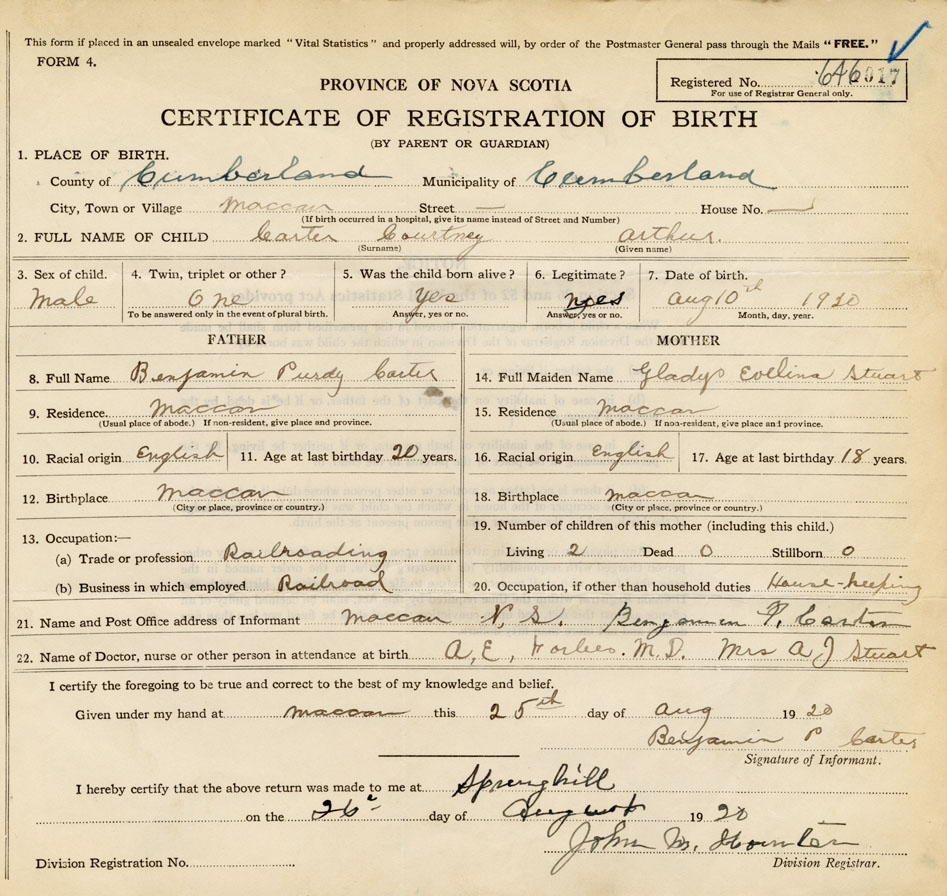 This form if placed in an unsealed envelope marked "Vital Statistics" and properly addressed will, by order of the Postmaster General pass through the Mails "FREE."
FORM 4.
PROVINCE OF NOVA SCOTIA
Registered No. 646017
For use of Registrar General only.
CERTIFICATE OF REGISTRATION OF BIRTH
(BY PARENT OR GUARDIAN)
1. PLACE OF BIRTH.
County of Cumberland Municipality of Cumberland
City, Town or Village Maccan Street — House No. —
(If birth occurred in a hospital, give its name instead of Street and Number)
2. FULL NAME OF CHILD Carter Courtney Arthur.
(Surname) (Given name)
3. Sex of child. 4. Twin, triplet or other? 5. Was the child born alive? 6. Legitimate? 7. Date of birth.
Male One Yes yes Aug 10th 1920
To be answered only in the event of plural birth. Answer, yes or no. Answer, yes or no. Month, day, year.
FATHER
8. Full Name Benjamin Purdy Carter
9. Residence Maccan
(Usual place of abode.) If non-resident, give place and province.
10. Racial origin English 11. Age at last birthday 20 years.
12. Birthplace Maccan
(City or place, province or country.)
13. Occupation:—
(a) Trade or profession Railroading
(b) Business in which employed Railroad
MOTHER
14. Full Maiden Name Gladys Evelina Stuart
15. Residence Maccan
(Usual place of abode.) If non-resident, give place and province.
16. Racial origin English 17. Age at last birthday 18 years.
18. Birthplace Maccan
(City or place, province or country.)
19. Number of children of this mother (including this child.)
Living 2 Dead 0 Stillborn 0
20. Occupation, if other than household duties House-keeping
21. Name and Post Office address of Informant Maccan N. S. Benjamin P. Carter
22. Name of Doctor, nurse or other person in attendance at birth A. E. Forbes. M. D. Mrs A J Stuart
I certify the foregoing to be true and correct to the best of my knowledge and belief.
Given under my hand at Maccan this 25th day of Aug 1920
Benjamin P Carter
Signature of Informant.
I hereby certify that the above return was made to me at Springhill
on the 26 day of August 1920
John M.
Division Registration No. Division Registrar.